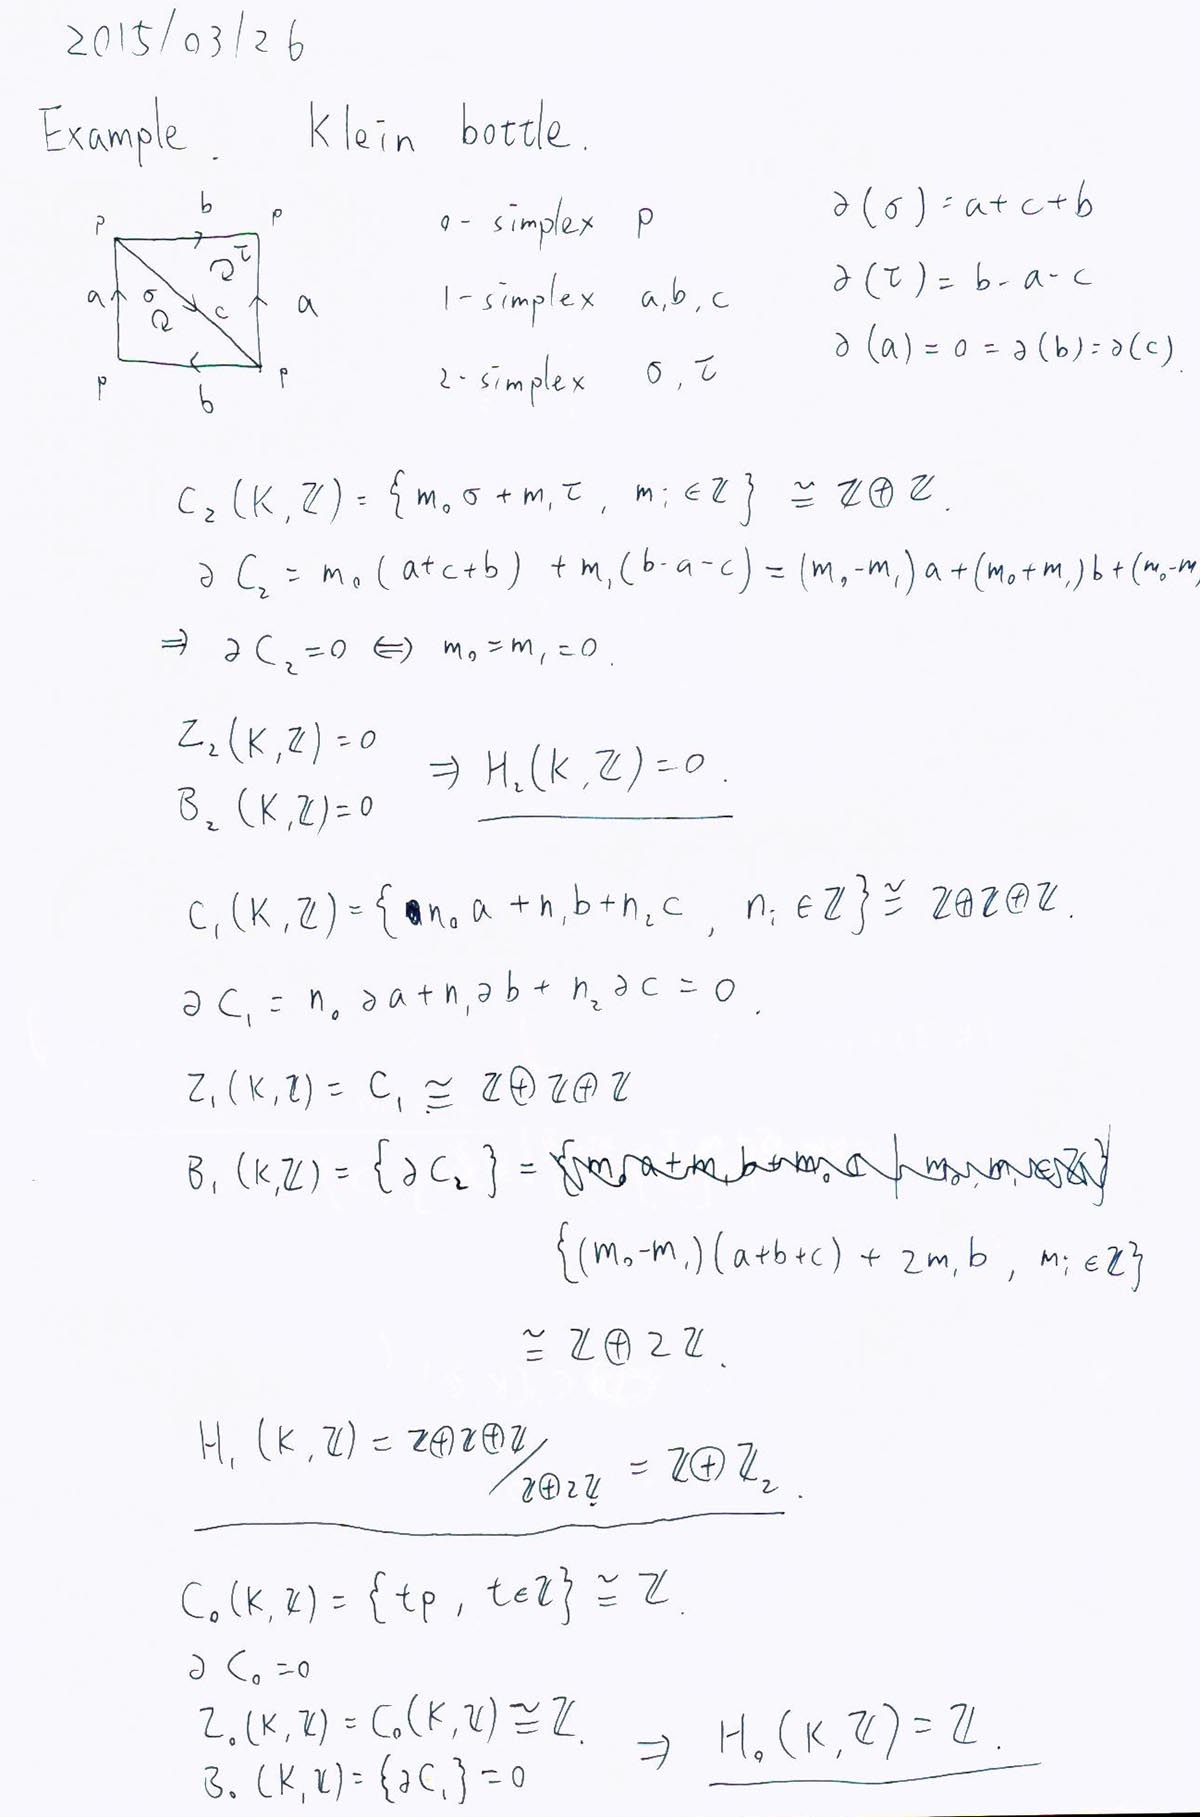 2015/03/26
Example. Klein bottle.
b
p p
τ
a σ c a
p p
b
0-simplex p
1-simplex a,b,c
2-simplex σ,τ
∂(σ)=a+c+b
∂(τ)=b-a-c
∂(a)=0=∂(b)=∂(c).
C₂(K,ℤ)={m₀σ+m₁τ, mᵢ∈ℤ} ≅ ℤ⊕ℤ.
∂C₂=m₀(a+c+b)+m₁(b-a-c)=(m₀-m₁)a+(m₀+m₁)b+(m₀-m
⇒ ∂C₂=0 ⇔ m₀=m₁=0.
Z₂(K,ℤ)=0
B₂(K,ℤ)=0
⇒ H₂(K,ℤ)=0.
C₁(K,ℤ)={n₀a+n₁b+n₂c, nᵢ∈ℤ}≅ℤ⊕ℤ⊕ℤ.
∂C₁=n₀∂a+n₁∂b+n₂∂c=0.
Z₁(K,ℤ)=C₁≅ℤ⊕ℤ⊕ℤ
B₁(K,ℤ)={∂C₂}=
{(m₀-m₁)(a+b+c)+2m₁b, mᵢ∈ℤ}
≅ℤ⊕2ℤ.
H₁(K,ℤ)=ℤ⊕ℤ⊕ℤ/ℤ⊕2ℤ=ℤ⊕ℤ₂.
C₀(K,ℤ)={tp, t∈ℤ}≅ℤ.
∂C₀=0
Z₀(K,ℤ)=C₀(K,ℤ)≅ℤ.
B₀(K,ℤ)={∂C₁}=0
⇒ H₀(K,ℤ)=ℤ.